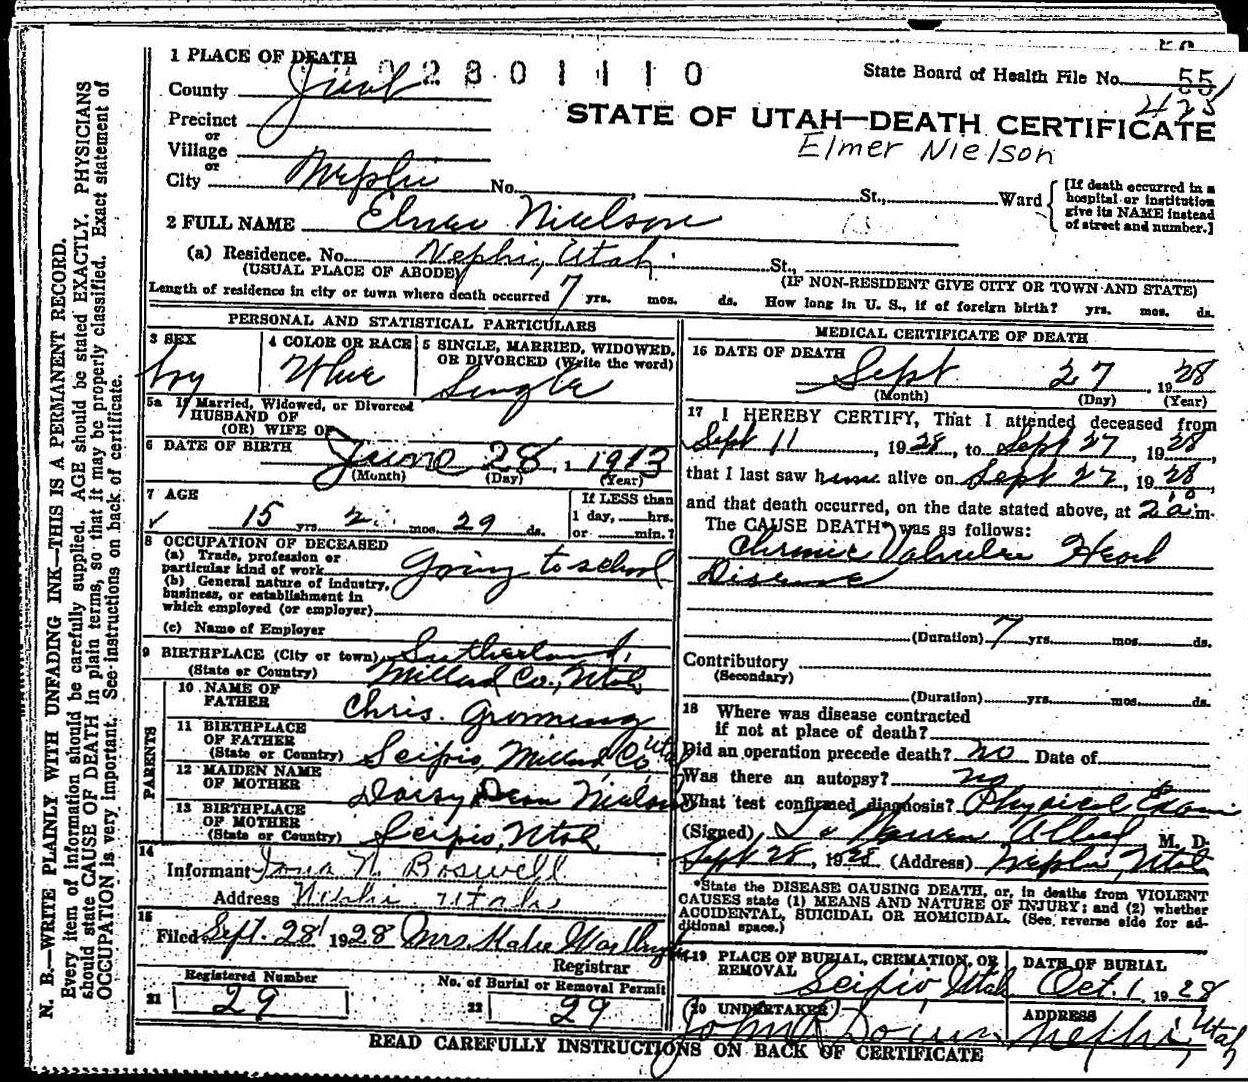 1 PLACE OF DEATH
2 8 0 1 1 1 0
State Board of Health File No. 55
425
County Juab
STATE OF UTAH—DEATH CERTIFICATE
Elmer Nielson
Precinct
or
Village
or
City Nephi No. St., Ward
[If death occurred in a hospital or institution give its NAME instead of street and number.]
2 FULL NAME Elmer Nielson
(a) Residence. No. Nephi, Utah St.,
(USUAL PLACE OF ABODE) (IF NON-RESIDENT GIVE CITY OR TOWN AND STATE)
Length of residence in city or town where death occurred 7 yrs. mos. ds. How long in U. S., if of foreign birth? yrs. mos. ds.
PERSONAL AND STATISTICAL PARTICULARS
3 SEX boy
4 COLOR OR RACE White
5 SINGLE, MARRIED, WIDOWED, OR DIVORCED (Write the word) Single
5a If Married, Widowed, or Divorced
HUSBAND OF
(OR) WIFE OF
6 DATE OF BIRTH June 28, 1 1913
(Month) (Day) (Year)
7 AGE 15 yrs. 2 mos. 29 ds.
If LESS than 1 day, hrs. or min.?
8 OCCUPATION OF DECEASED
(a) Trade, profession or particular kind of work Going to school
(b) General nature of industry, business, or establishment in which employed (or employer)
(c) Name of Employer
9 BIRTHPLACE (City or town) Sutherland,
(State or Country) Millard Co., Utah
PARENTS
10 NAME OF FATHER Chris.
11 BIRTHPLACE OF FATHER (State or Country) Scipio, Millard Co Utah
12 MAIDEN NAME OF MOTHER Daisy Dean Nielson
13 BIRTHPLACE OF MOTHER (State or Country) Scipio, Utah
14 Informant Iona N. Boswell
Address Nephi Utah
15 Filed Sept. 28 1928 Mrs.
Registrar
Registered Number
21 29
No. of Burial or Removal Permit
22 29
MEDICAL CERTIFICATE OF DEATH
16 DATE OF DEATH Sept 27, 1928
(Month) (Day) (Year)
17 I HEREBY CERTIFY, That I attended deceased from
Sept 11, 1928, to Sept 27, 1928,
that I last saw him alive on Sept 27, 1928,
and that death occurred, on the date stated above, at 2 a. m.
The CAUSE DEATH* was as follows:
Chronic Valvular Heart
Disease
(Duration) 7 yrs. mos. ds.
Contributory
(Secondary)
(Duration) yrs. mos. ds.
18 Where was disease contracted
if not at place of death?
Did an operation precede death? no Date of
Was there an autopsy? no
What test confirmed diagnosis? Physical Exam
(Signed) M. D.
Sept 28, 1928 (Address) Nephi, Utah
*State the DISEASE CAUSING DEATH, or, in deaths from VIOLENT
CAUSES state (1) MEANS AND NATURE OF INJURY; and (2) whether
ACCIDENTAL, SUICIDAL OR HOMICIDAL. (See reverse side for ad-
ditional space.)
19 PLACE OF BURIAL, CREMATION, OR REMOVAL Scipio, Utah
DATE OF BURIAL Oct. 1 1928
20 UNDERTAKER
ADDRESS Nephi, Utah
READ CAREFULLY INSTRUCTIONS ON BACK OF CERTIFICATE
N. B.—WRITE PLAINLY WITH UNFADING INK—THIS IS A PERMANENT RECORD.
Every item of information should be carefully supplied. AGE should be stated EXACTLY. PHYSICIANS
should state CAUSE OF DEATH in plain terms, so that it may be properly classified. Exact statement of
OCCUPATION is very important. See instructions on back of certificate.